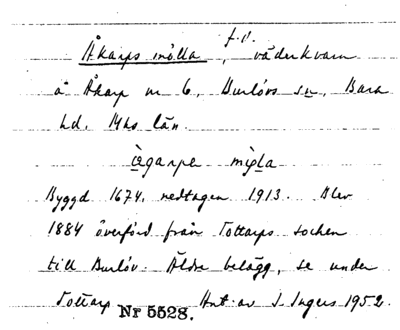 Åkarps mölla, f.d. väderkvarn
å Åkarp nr 6, Burlövs sn, Bara
hd. Mhs län.
Byggd 1674, nedtagen 1913. Blev
1884 överförd från Tottarps socken
till Burlöv. Äldre belägg, se under
Tottarp Nr 5528. Ant. av I. Ingers 1952.